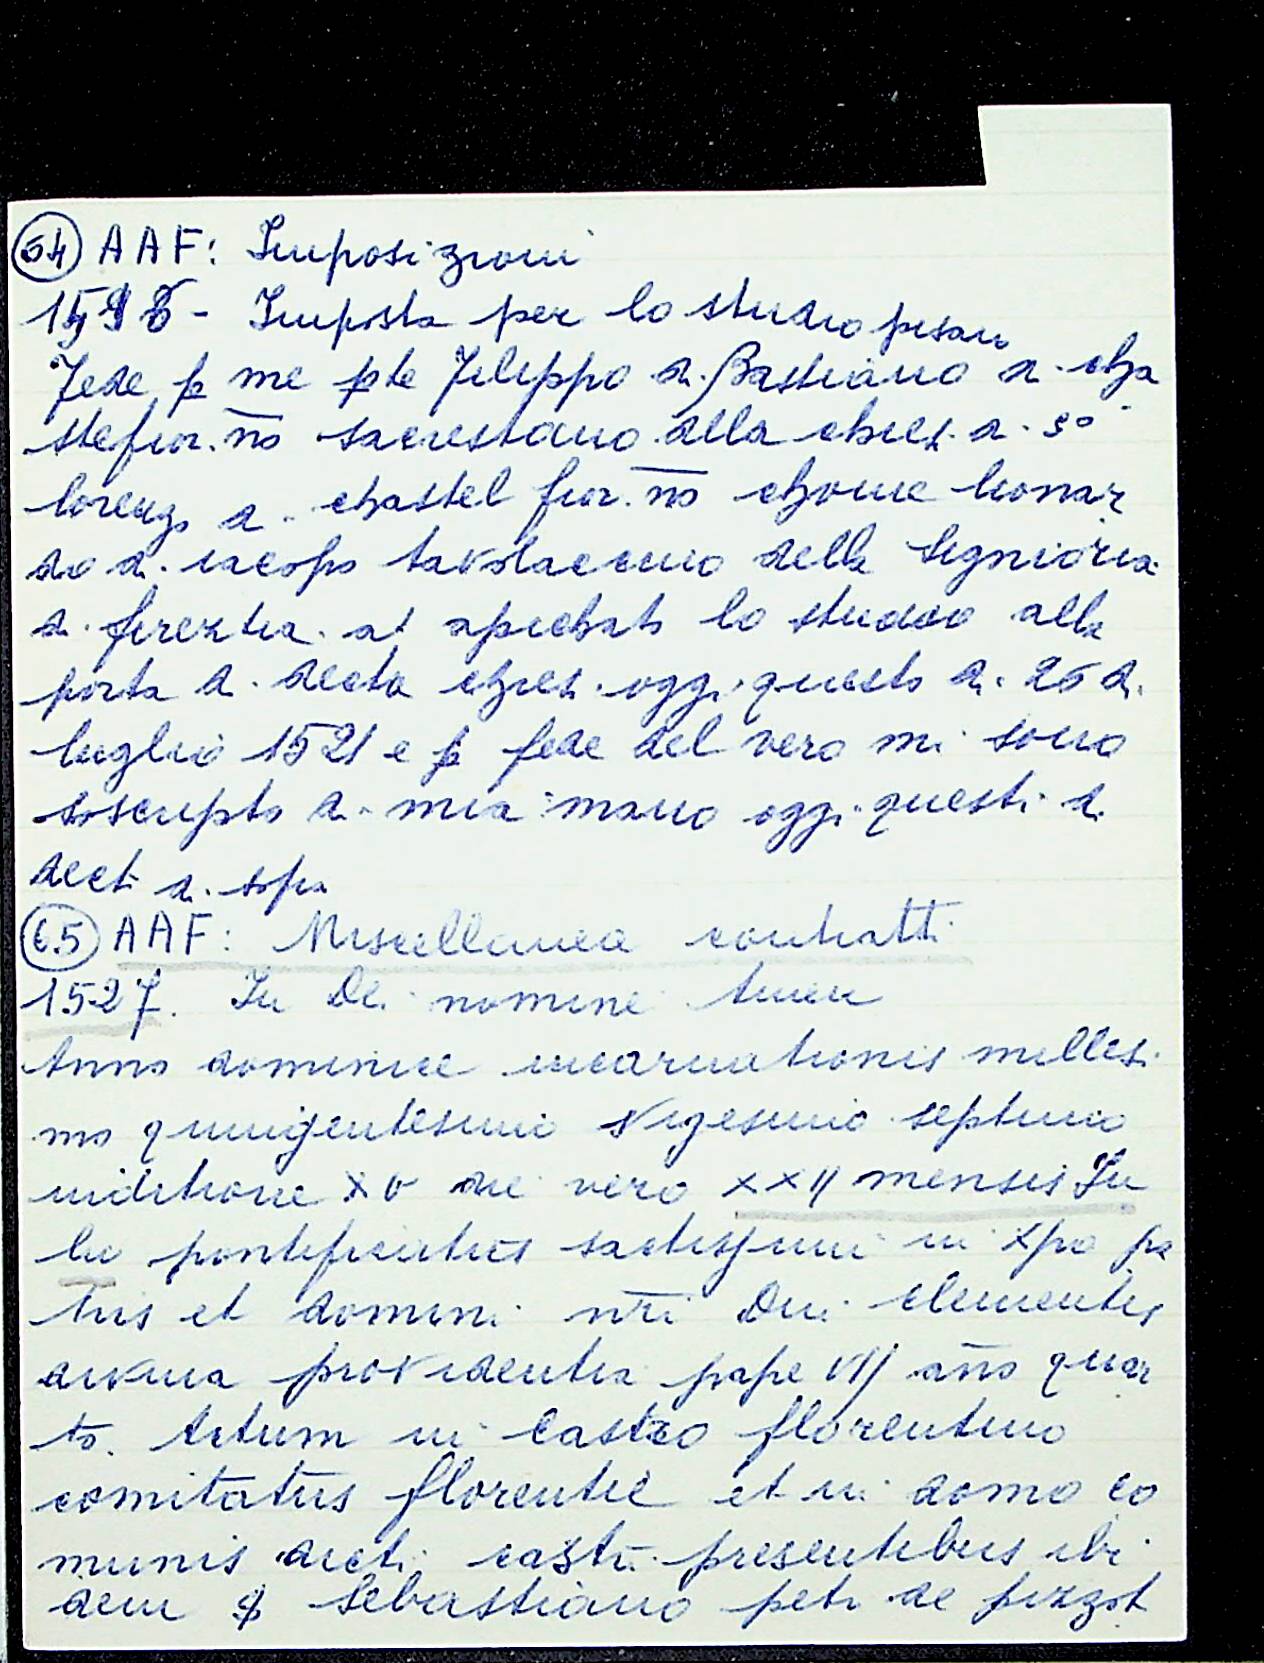 64 AAF: Imposizioni
1518 - Imposta per lo studio pisano
Fede p me pte Filippo d. Bastiano d. cha
stefior. no sacrestano della chies. d. so
lorenzo d. chastel fior. no chome lionar
do d. iacopo tavolaccino della Signioria
d. firenzia at apichato lo studio alla
porta d. decta chies. oggi questo d. 26 d.
luglio 1521 e p fede del vero mi sono
soscripto d. mia mano oggi questi d.
dect d. sopa
65 AAF: Miscellanea contratti
1527. In Dei nomine Amen
Anno dominice incarnationis milles.
mo quingentesimo vigesimo septimo
inditione XV die vero XXII mensis Iu
lii pontificatus sactissimi in Xpo pa
tris et domini nri Dni Clementis
divina providentia pape VII ano quar
to. Actum in Castro florentino
comitatus florentie et in domo co
munis dicti castri presentibus ibi
dem S Sebastiano petri de pizzot